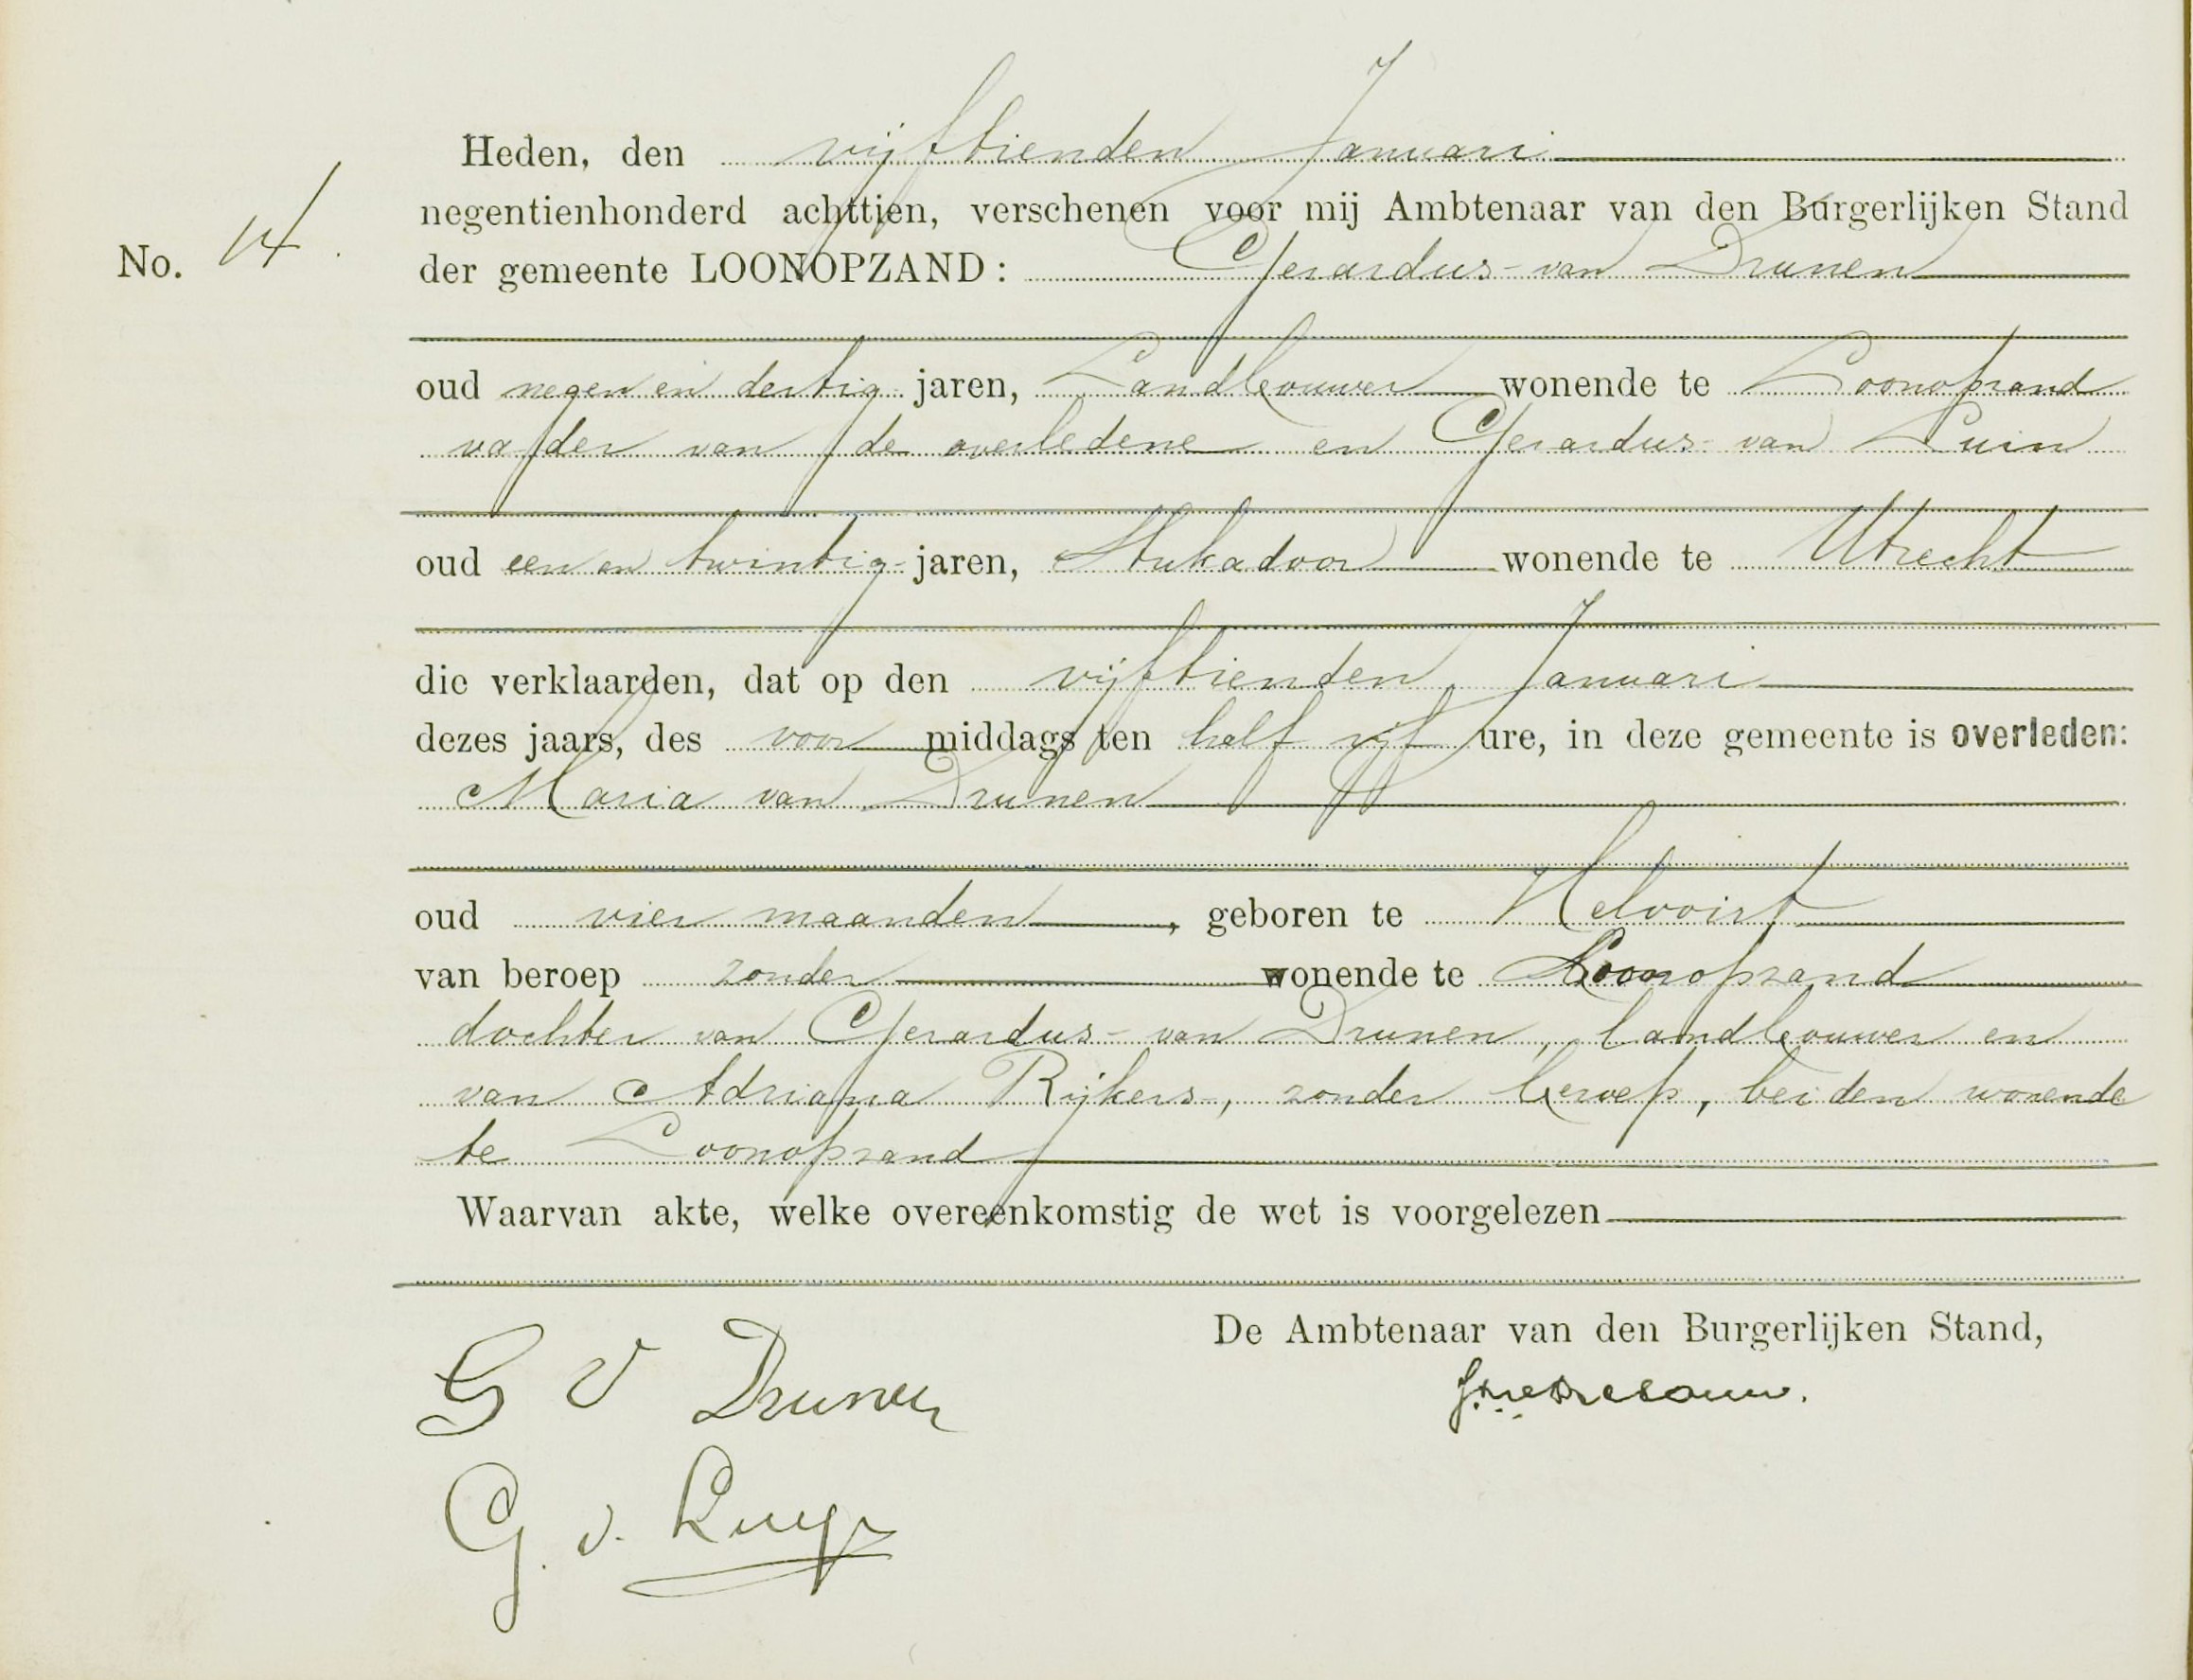 Heden, den vijftienden Januari
negentienhonderd achttien, verschenen voor mij Ambtenaar van den Burgerlijken Stand
No. 14.
der gemeente LOONOPZAND: Gerardus van Drunen
oud negen en dertig jaren, Landbouwer wonende te Loonopzand
vader van de overledene en Gerardus van Luin
oud een en twintig jaren, Stukadoor wonende te Utrecht
die verklaarden, dat op den vijftienden Januari
dezes jaars, des voor middags ten half vijf ure, in deze gemeente is overleden:
Maria van Drunen
oud vier maanden, geboren te Helvoirt
van beroep zonder wonende te Loonopzand
dochter van Gerardus van Drunen, landbouwer en
van Adriana Rijkers, zonder beroep, beiden wonende
te Loonopzand
Waarvan akte, welke overeenkomstig de wet is voorgelezen
De Ambtenaar van den Burgerlijken Stand,
G V Drunen
G. v. Luijn